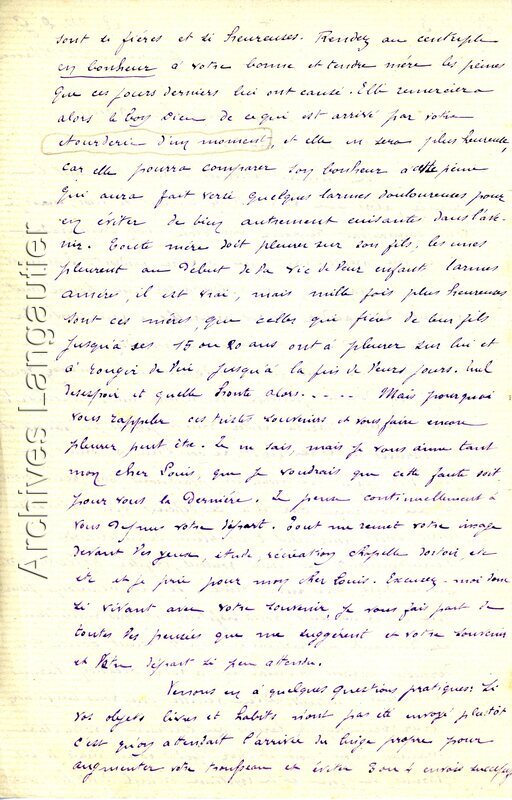 sont si fières et si heureuses. Rendez au centuple
en bonheur à votre bonne et tendre mère les peines
que ces jours derniers lui ont causé. Elle remerciera
alors le bon Dieu de ce qui est arrivé par votre
étourderie d'un moment, et elle en sera plus heureuse,
car elle pourra comparer son bonheur à cette peine
qui aura fait verser quelques larmes douloureuses pour
en éviter de bien autrement cuisantes dans l'ave-
nir. Toute mère doit pleurer sur son fils, les unes
pleurent au début de la vie de leur enfant larmes
amères, il est vrai, mais mille fois plus heureuses
sont ces mères, que celles qui fières de leur fils
jusqu'à ses 15 ou 20 ans ont à pleurer sur lui et
à rougir de lui jusqu'à la fin de leurs jours. Quel
desespoir et quelle honte alors..... Mais pourquoi
vous rappeler ces tristes souvenirs et vous faire encore
pleurer peut être. Je ne sais, mais je vous aime tant
mon cher Louis, que je voudrais que cette faute soit
pour vous la dernière. Je pense continuellement à
vous depuis votre départ. Tout me remet votre image
devant les yeux, étude, récréation chapelle dortoir etc
etc et je prie pour mon cher Louis. Excusez-moi donc
si vivant avec votre souvenir, je vous fais part de
toutes les pensées que me suggèrent et votre souvenir
et votre départ si peu attendu.
Venons en à quelques questions pratiques: Si
vos objets livres et habits n'ont pas été envoyé plutôt
c'est qu'on attendait l'arrivée du linge propre pour
augmenter votre trousseau et éviter 3 ou 4 envois successifs
Archives Langautier